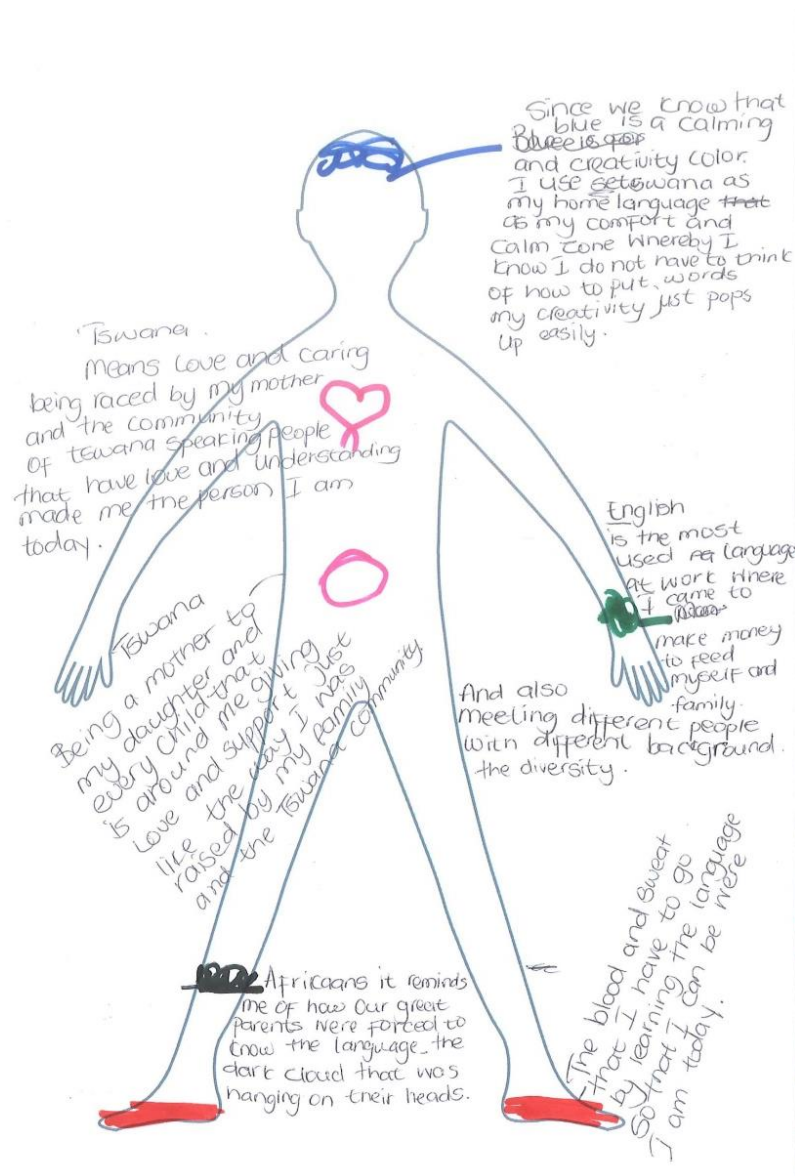 Since we know that
blue is a calming
and creativity color.
I use setswana as
my home language that
as my comfort and
calm zone whereby I
know I do not have to think
of how to put, words
my creativity just pops
up easily.
Tswana.
Means Love and caring
being raced by my mother
and the community
of tswana speaking people
that have love and understanding
made me the person I am
today.
English
is the most
used language
at work where
I came to
make money
to feed
myself and
family.
And also
meeting different people
with different background.
the diversity.
Tswana
Being a mother to
my daughter and
every child that
is around me giving
Love and support just
like the way I was
raised by my family
and the Tswana community
Africaans it reminds
me of how our great
parents were forced to
know the language the
dark cloud that was
hanging on their heads.
The blood and sweat
that I have to go
by learning the language
So that I can be were
I am today.